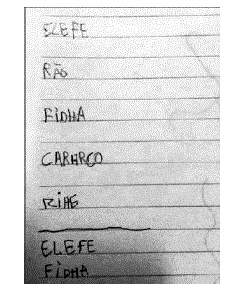 ELEFE
RÃO
FIDHA
CABARCO
RIHE
ELEFE
FIDHA